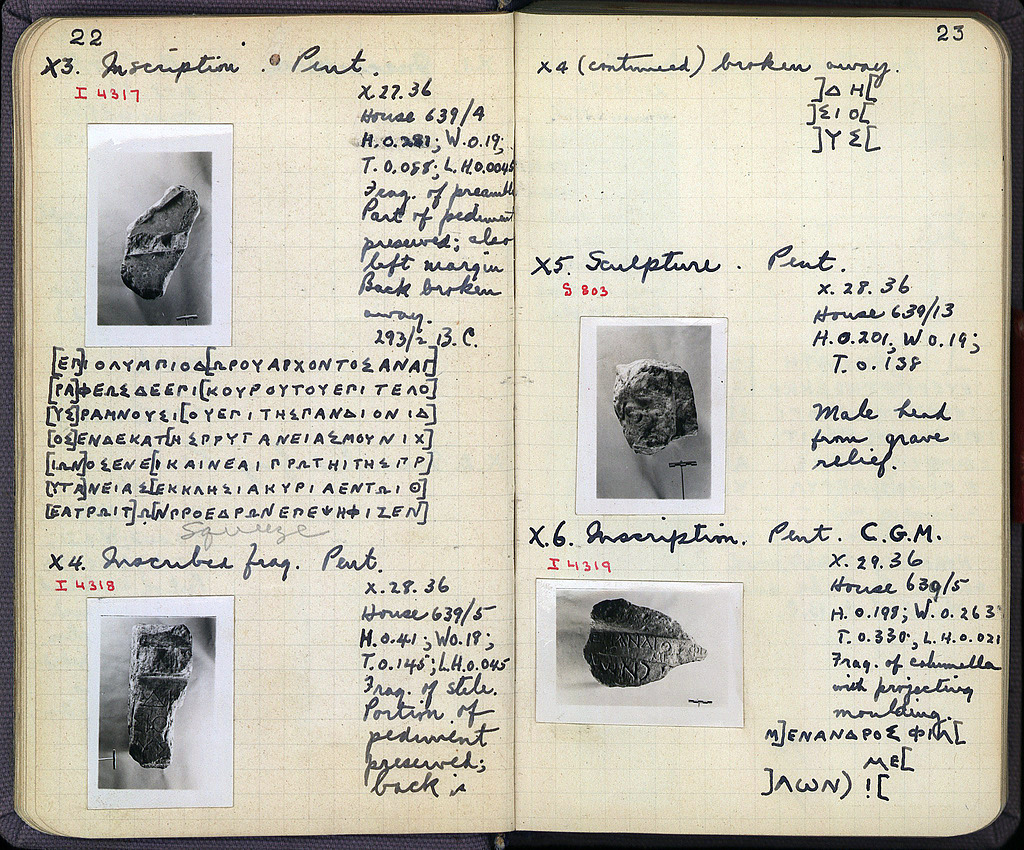 22
X3. Inscription. Pent.
I 4317
X.27.36
House 639/4
H. 0.281; W. 0.19;
T. 0.088; L.H. 0.0045
Frag. of preamble
Part of pediment
preserved; also
left margin
Back broken
away.
293/2 B.C.
[ΕΠ]ΙΟΛΥΜΠΙΟΔ[ΩΡΟΥΑΡΧΟΝΤΟΣΑΝΑΓ]
[ΡΑ]ΦΕΩΣΔΕΕΠΙ[ΚΟΥΡΟΥΤΟΥΕΠΙΤΕΛΟ]
[ΥΣ]ΡΑΜΝΟΥΣΙ[ΟΥΕΠΙΤΗΣΠΑΝΔΙΟΝΙΔ]
[ΟΣ]ΕΝΔΕΚΑΤ[ΗΣΠΡΥΤΑΝΕΙΑΣΜΟΥΝΙΧ]
[ΙΩΝ]ΟΣΕΝΕ[ΙΚΑΙΝΕΑΙΠΡΩΤΗΙΤΗΣΠΡ]
[ΥΤΑ]ΝΕΙΑΣ[ΕΚΚΛΗΣΙΑΚΥΡΙΑΕΝΤΩΙΘ]
[ΕΑΤΡΩΙΤ]Ω[ΝΠΡΟΕΔΡΩΝΕΠΕΨΗΦΙΖΕΝ]
Squeeze
X4. Inscribed frag. Pent.
I 4318
X.28.36
House 639/5
H. 0.41; W. 0.18;
T. 0.145; L.H. 0.045
Frag. of stele.
Portion of
pediment
preserved;
back is
23
X4 (continued) broken away.
]ΔΗ[
]ΣΙΟ[
]ΥΣ[
X5. Sculpture. Pent.
S 803
X.28.36
House 639/13
H. 0.201, W. 0.19;
T. 0.138
Male head
from grave
relief.
X.6. Inscription. Pent. C.G.M.
I 4319
X.29.36
House 639/5
H. 0.198; W. 0.263
T. 0.330, L.H. 0.021
Frag. of columella
with projecting
moulding.
Μ]ΕΝΑΝΔΡΟΣ ΦΙΛ[
ΜΕ[
]ΛωΝ) ![